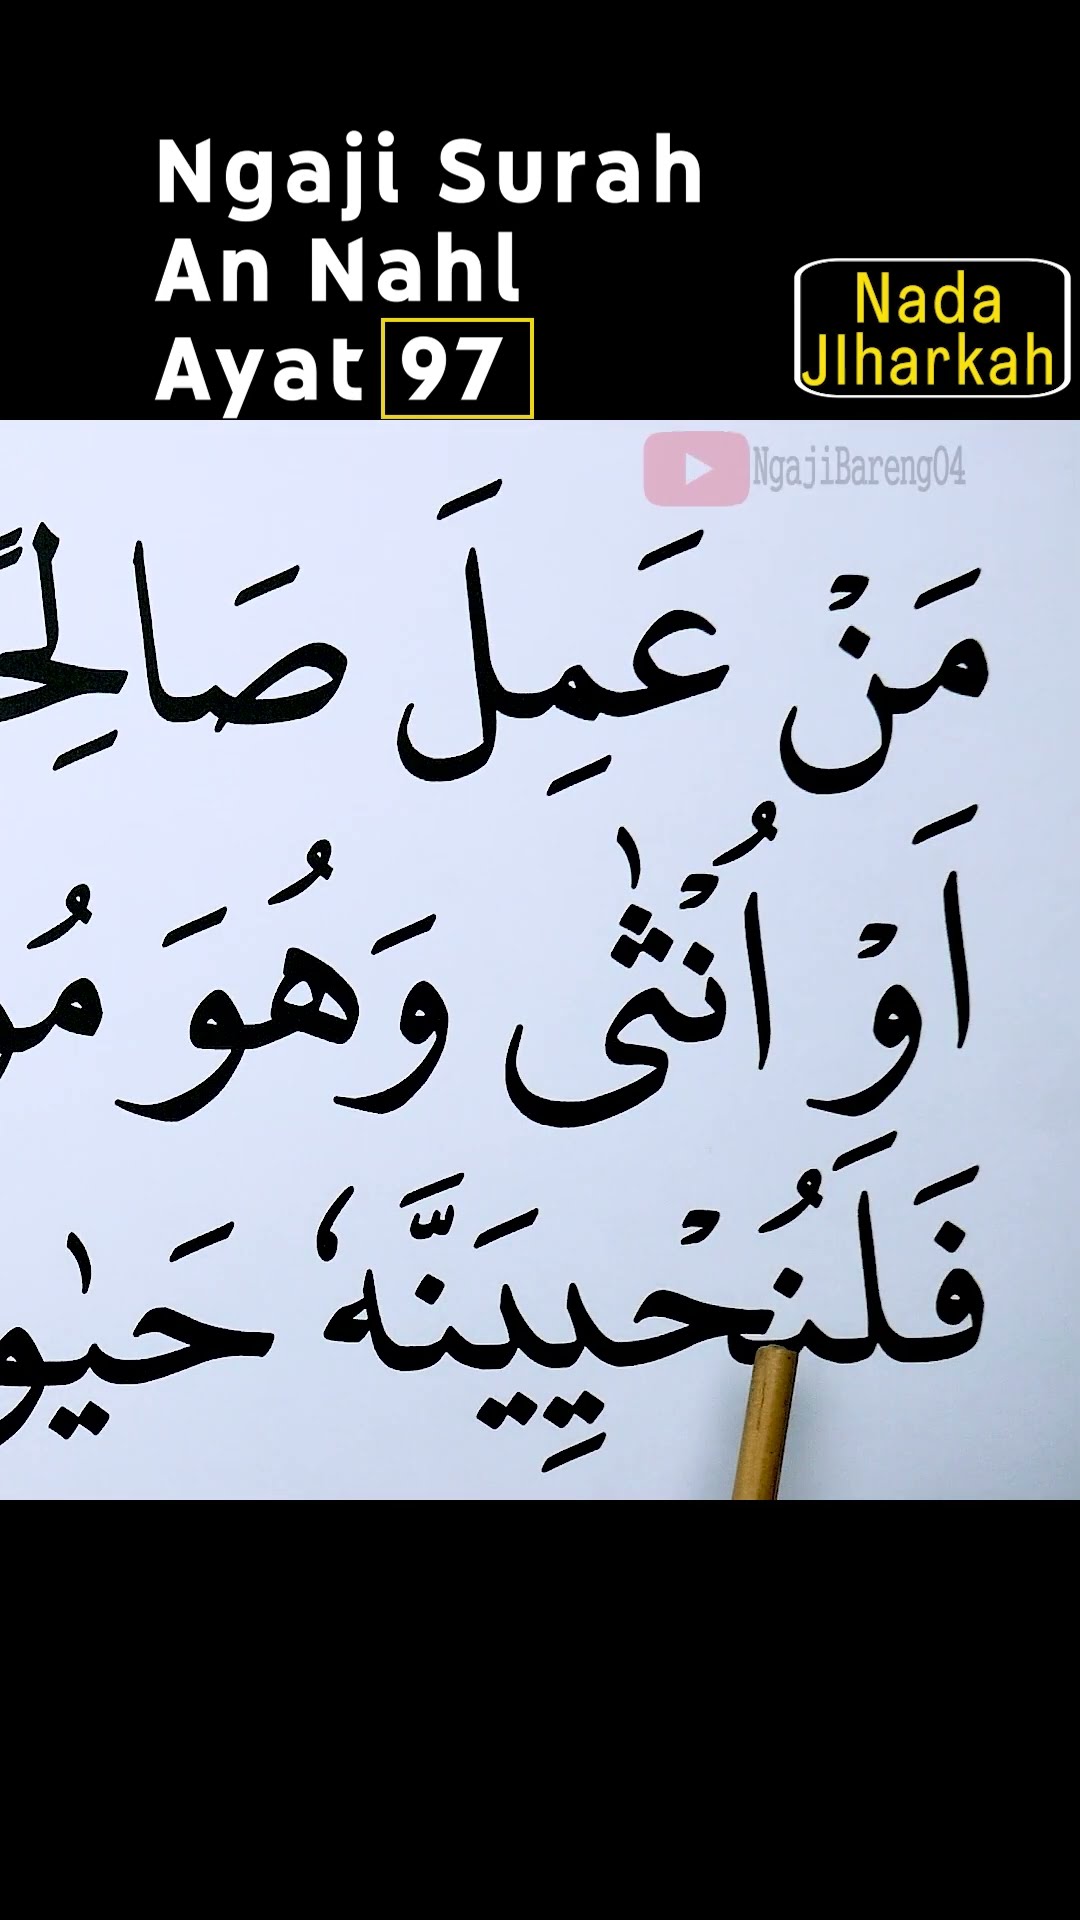 Ngaji Surah
An Nahl
Ayat 97
Nada
JIharkah
NgajiBareng04
مَنْ عَمِلَ صَالِحًا
اَوْ اُنْثٰى وَهُوَ
فَلَنُحْيِيَنَّهٗ